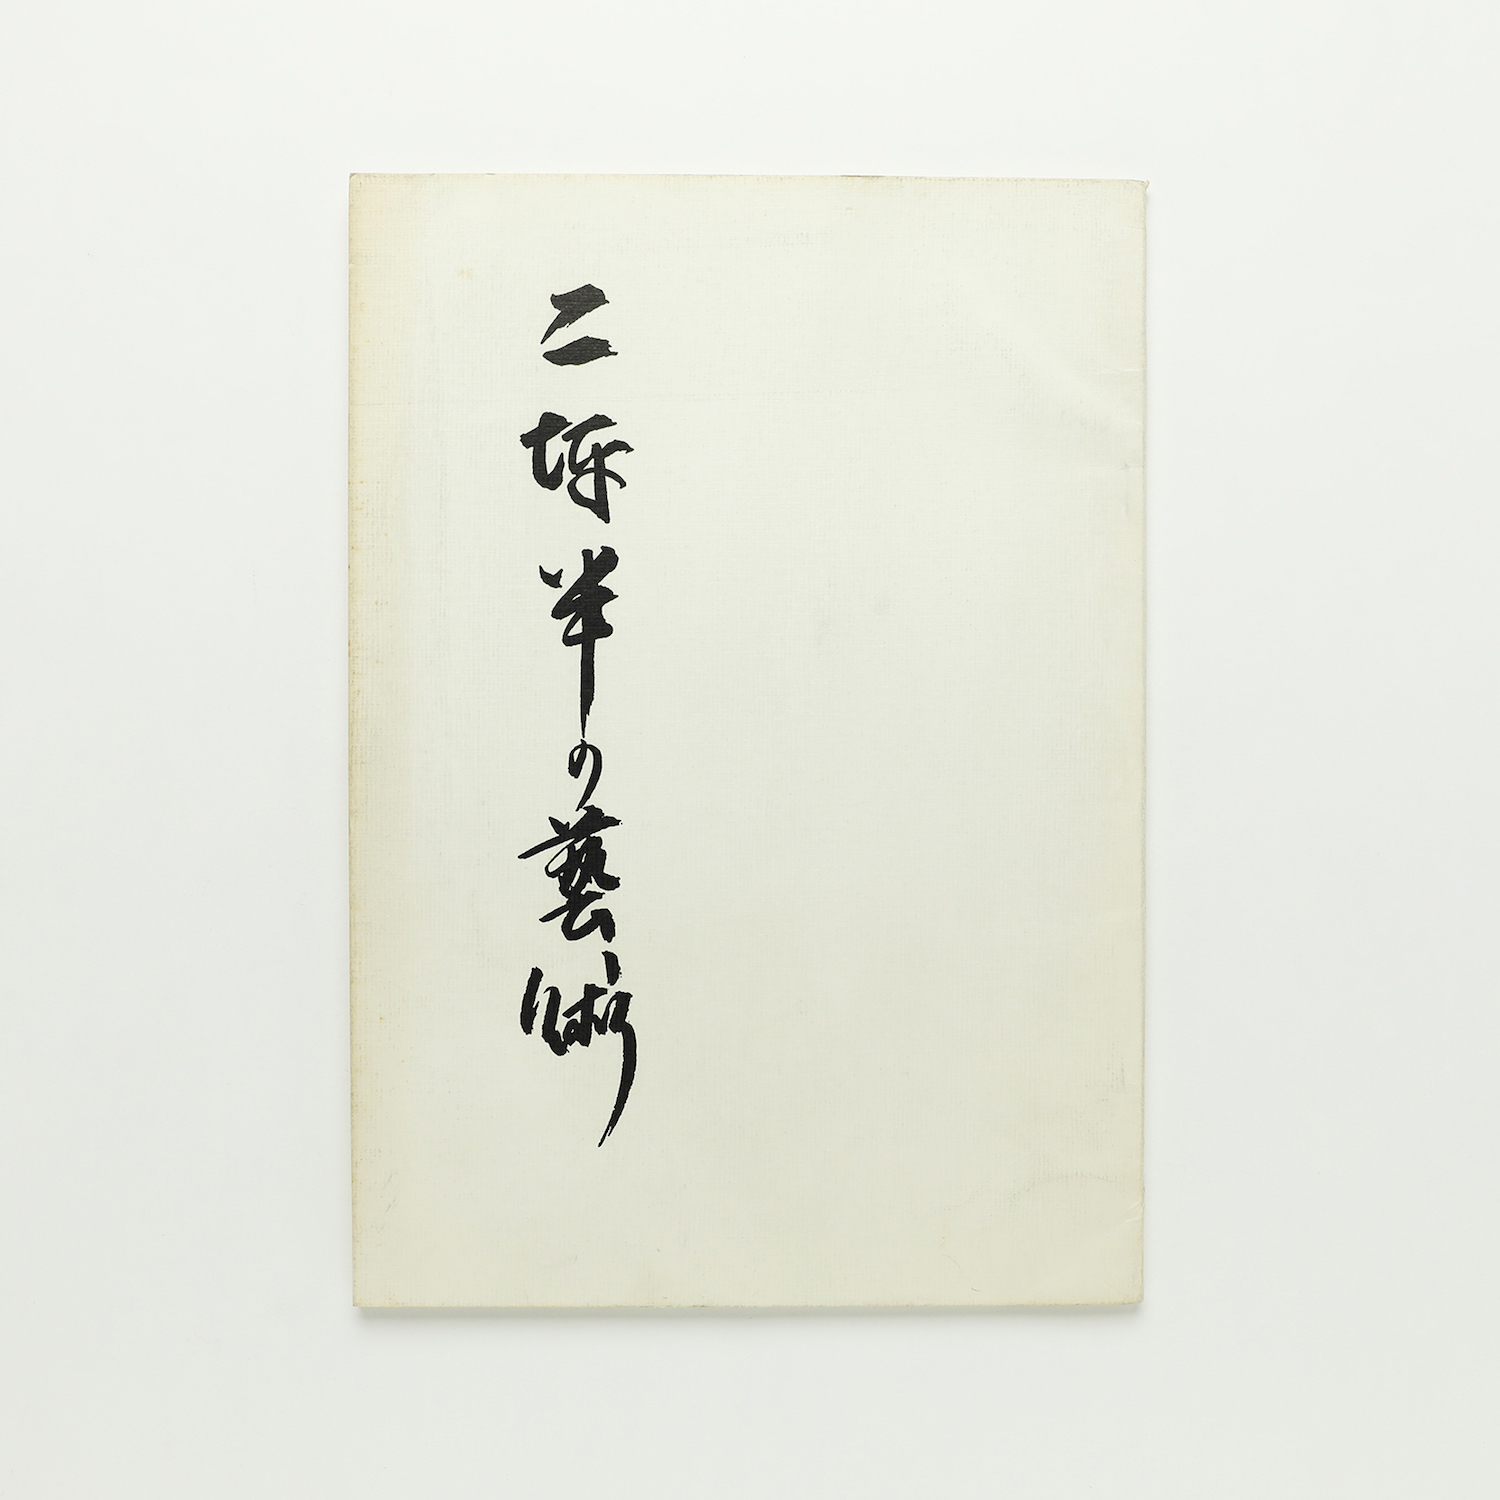 二坪半の藝術